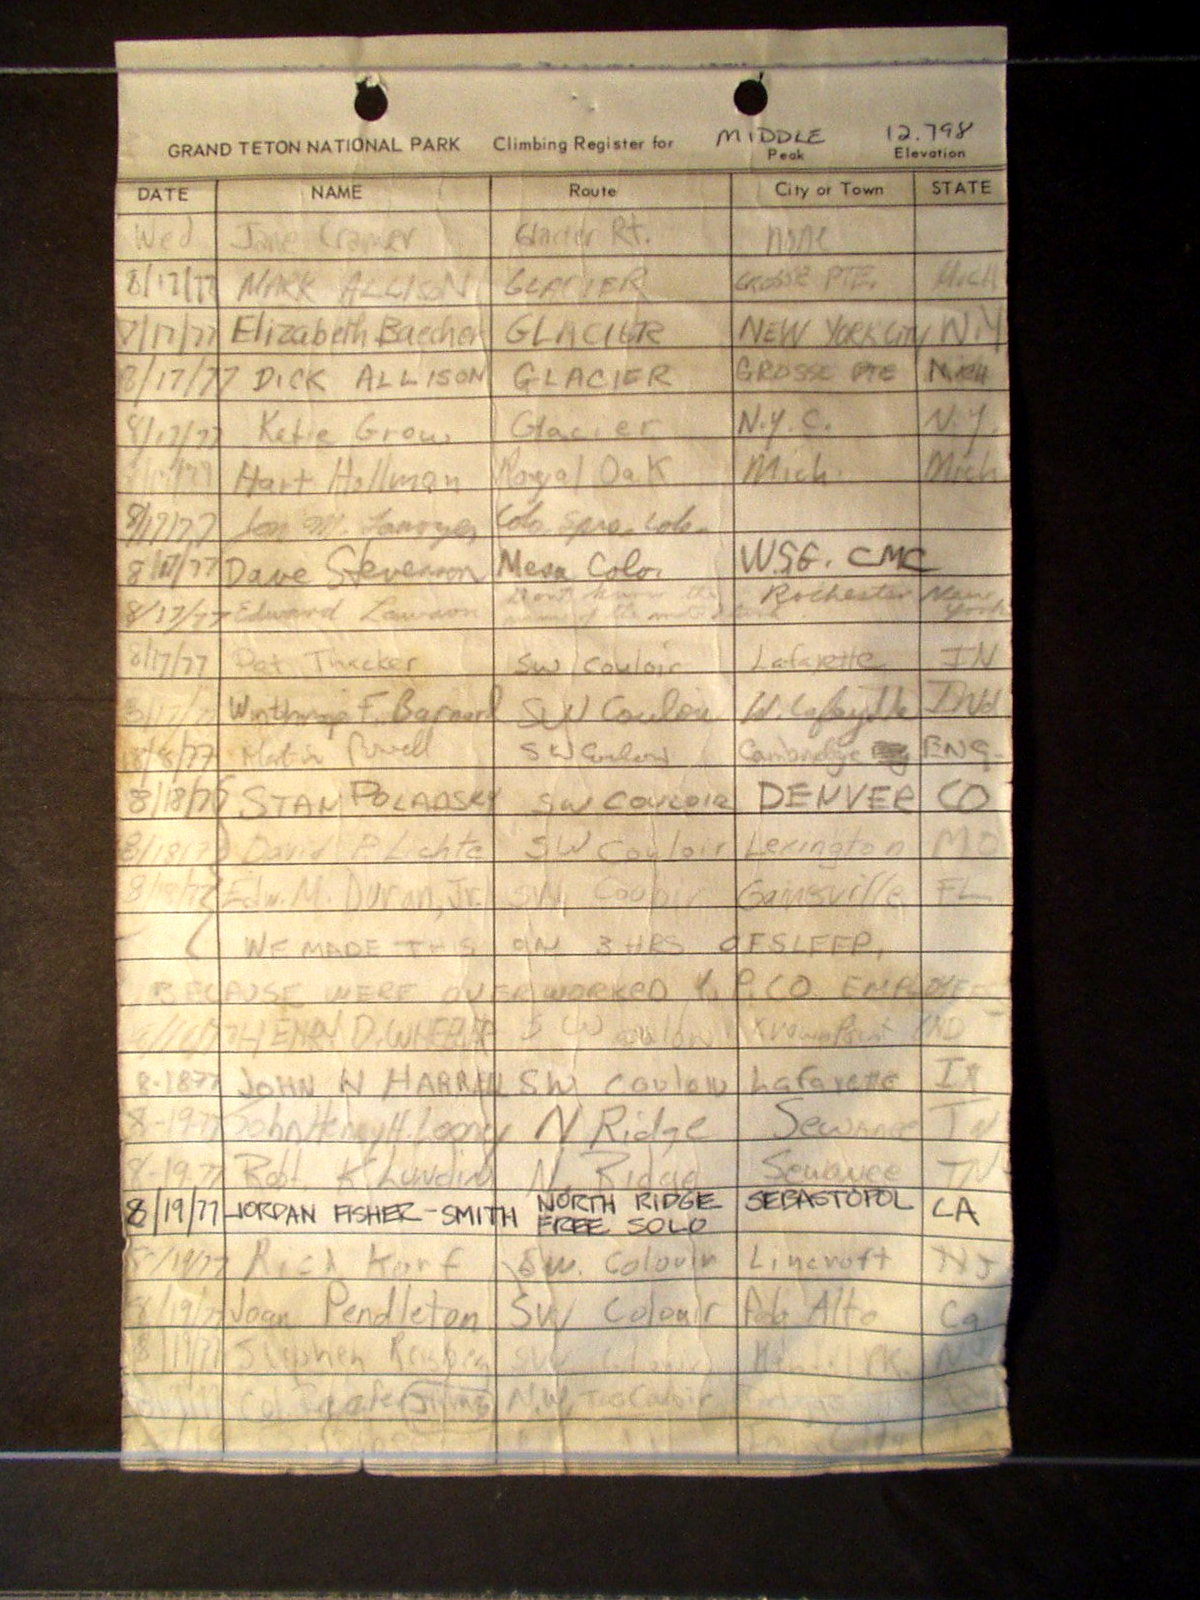 GRAND TETON NATIONAL PARK Climbing Register for MIDDLE 12.798
Peak Elevation
DATE NAME Route City or Town STATE
Wed Jane Cramer Glacier Rt. none
8/17/77 MARK ALLISON GLACIER GROSSE PTE. Mich
8/17/77 Elizabeth Baecher GLACIER NEW YORK CITY N.Y
8/17/77 DICK ALLISON GLACIER GROSSE PTE Mich
8/17/77 Katie Grow Glacier N.Y.C. N.Y.
Hart Hollman Royal Oak Mich. Mich
8/17/77 Jon M. Colo Spgs. Colo.
8/17/77 Dave Stevenson Mesa Colo. WSG. CMC
8/17/77 Edward Lawson Don't know the Rochester New
name of the York
8/17/77 Pat Thacker SW Couloir Lafayette IN
8/17/77 Winthrop F. Barnard SW Couloir W. Lafayette Ind
8/18/77 Powell SW Couloir Cambridge ENG.
8/18/77 STAN POLADSKY SW COULOIR DENVER CO
8/18/77 David P. Lichte SW Couloir Lexington MO
8/18/77 Edw. M. Duran, Jr. SW. Couloir Gainesville FL
WE MADE THIS ON 3 HRS OF SLEEP,
BECAUSE WERE OVERWORKED Y.P.CO. EMPLOYEES
HENRY D. WHEELER S W Couloir IND
8-18 77 JOHN N HARRELL SW Couloir Lafayette IN
8-19-77 John Henry H. Looney N Ridge Sewanee TN
8-19-77 Robt K. Lundin N. Ridge Sewanee TN
8/19/77 JORDAN FISHER-SMITH NORTH RIDGE SEBASTOPOL CA
FREE SOLO
8/19/77 Rick Korf S.W. Colouir Lincroft NJ
8/19/77 Joan Pendleton SW Colouir Palo Alto Ca
8/19/77 Stephen SW NJ
N.W. Couloir